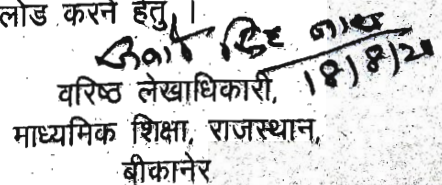 लोड करने हेतु ।
18/8/21
वरिष्ठ लेखाधिकारी,
माध्यमिक शिक्षा, राजस्थान,
बीकानेर